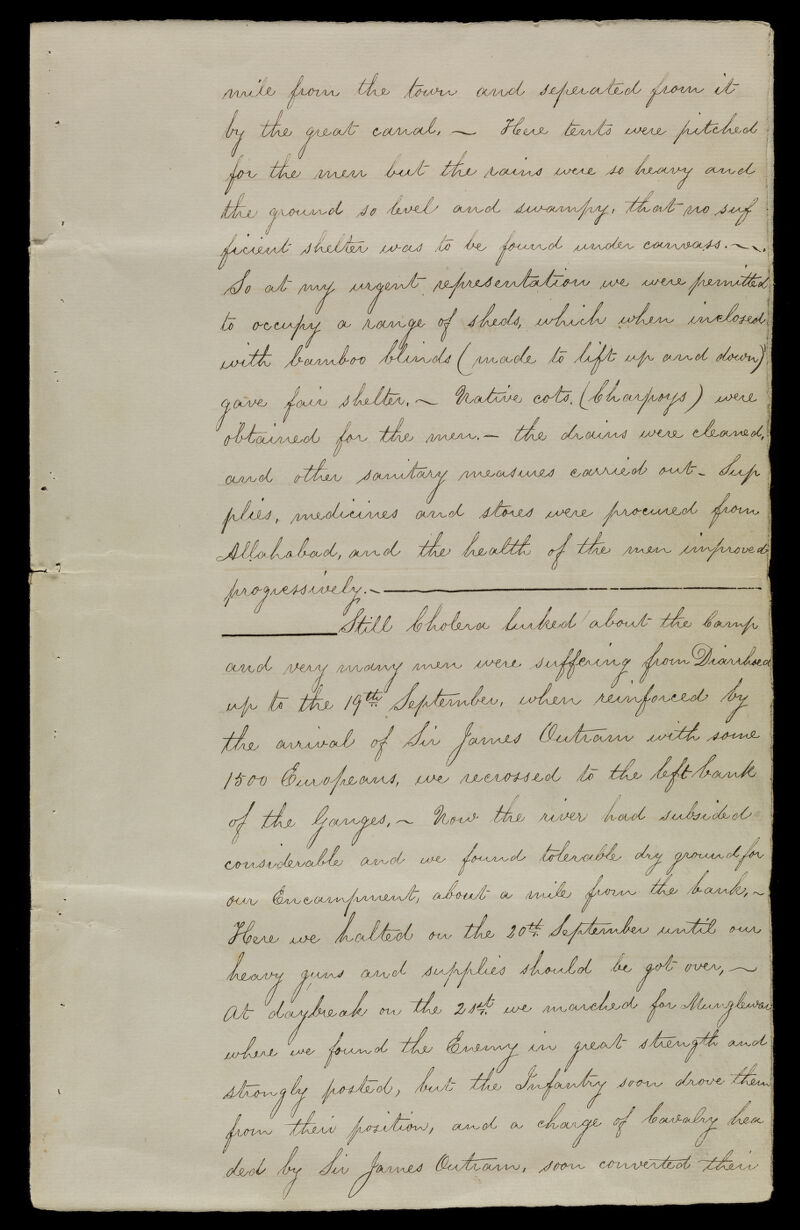 mile from the town and seperated from it
by the great canal. – Here tents were pitched
for the men but the rains were so heavy and
the ground so level and swampy, that no suf
ficient shelter was to be found under canvass. –
So at my urgent representation we were permitted
to occupy a range of sheds, which when inclosed
with bamboo blinds (made to lift up and down)
gave fair shelter. – Native cots. (Charpoys) were
obtained for the men. – the drains were cleaned,
and other sanitary measures carried out – Sup
plies, medicines and stores were procured from
Allahabad, and the health of the men improved
progressively. –
Still Cholera lurked about the Camp
and very many men were suffering from Diarrhoea
up to the 19th September, when reinforced by
the arrival of Sir James Outram with some
1500 Europeans, we recrossed to the left bank
of the Ganges. – Now the river had subsided
considerable and we found tolerable dry ground for
our Encampment, about a mile from the bank. –
Here we halted on the 20th September until our
heavy guns and supplies should be got over, –
At daybreak on the 21st we marched for Munglewar
where we found the Enemy in great strength and
strongly posted, but the Infantry soon drove them
from their position, and a charge of Cavalry hea
ded by Sir James Outram, soon converted their